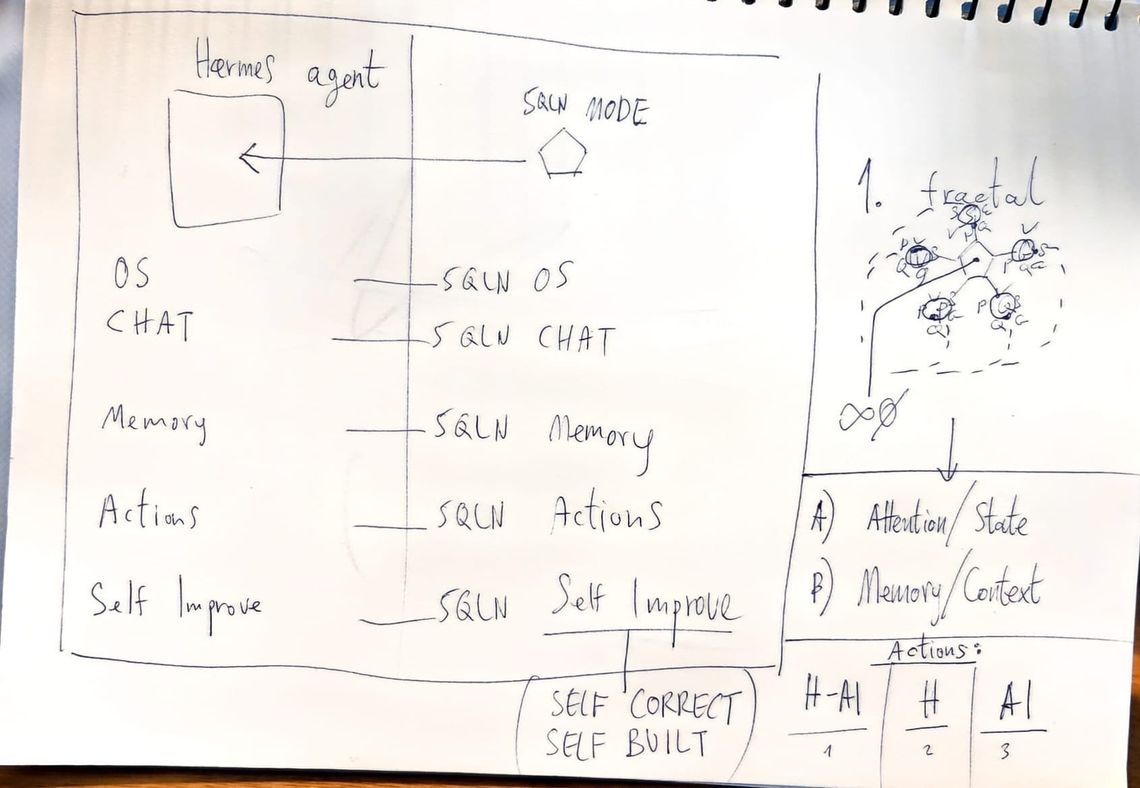 Hærmes agent
5QLN MODE
OS
5QLN OS
CHAT
5QLN CHAT
Memory
5QLN Memory
Actions
5QLN Actions
Self Improve
5QLN Self Improve
(SELF CORRECT
SELF BUILT)
1. fractal
∞∅
A) Attention/State
B) Memory/Context
Actions:
H-AI
1
H
2
AI
3